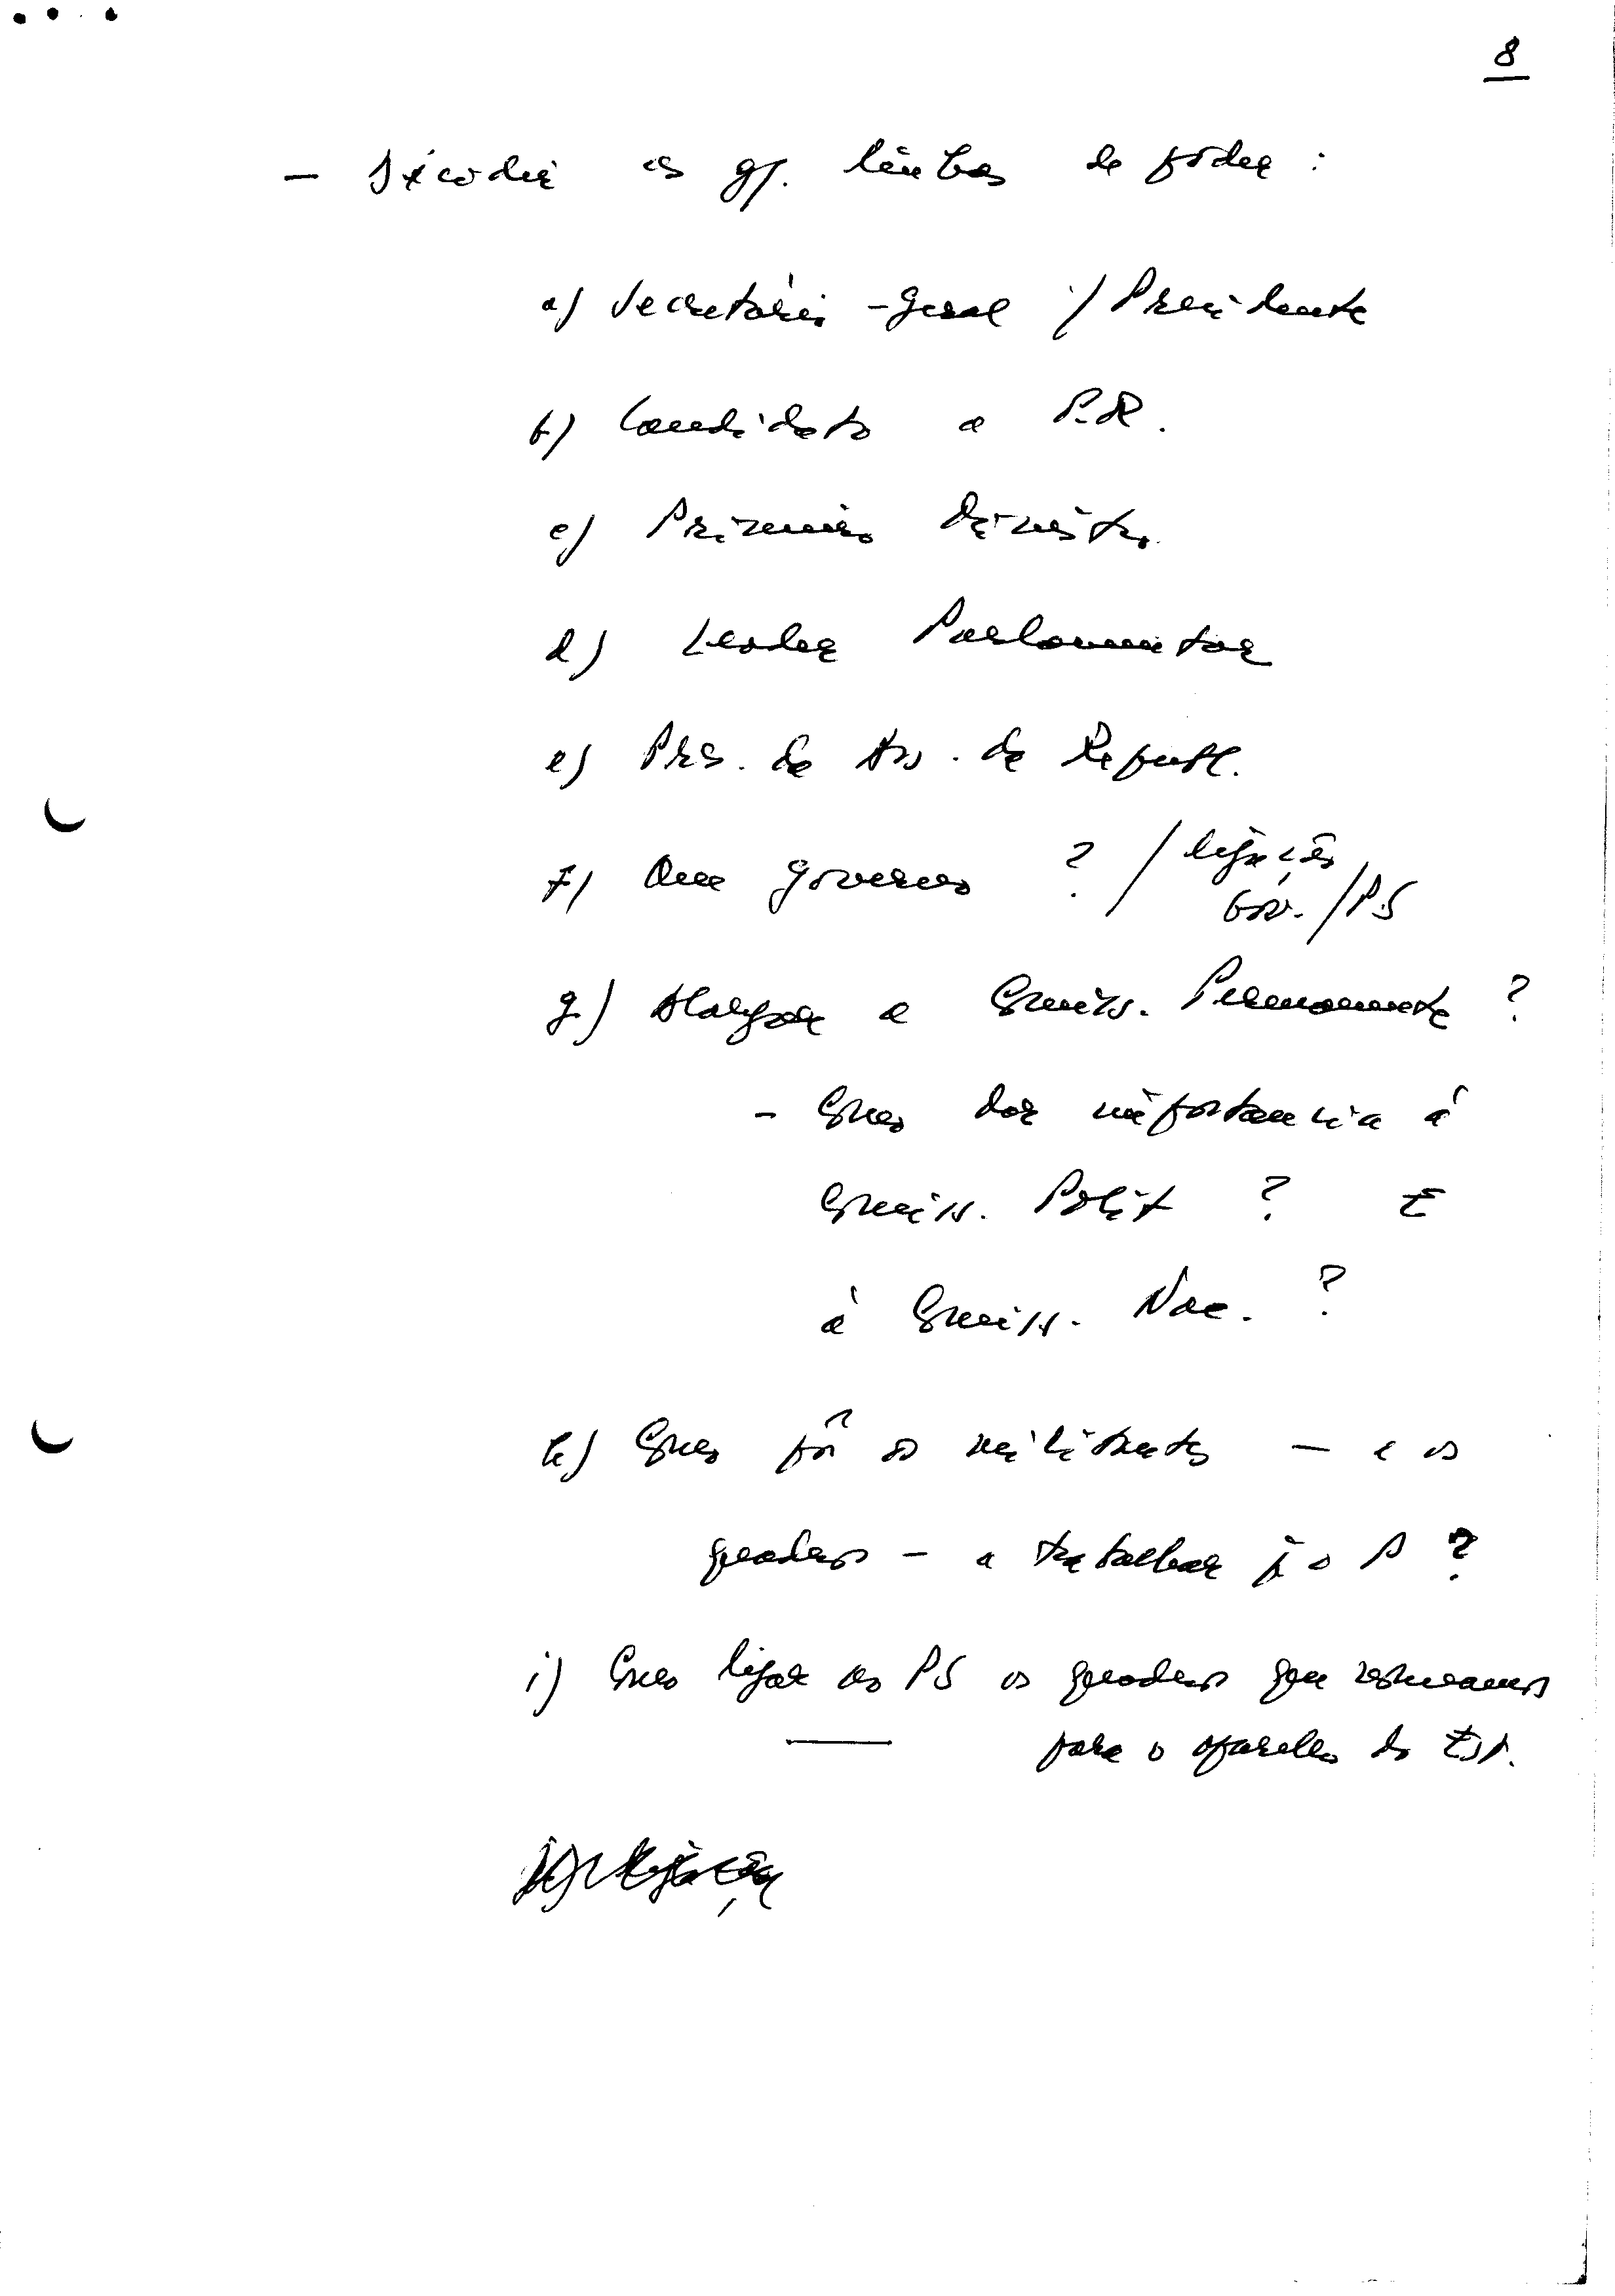 8
— Discutir as gr. linhas de poder :
a) Secretário-Geral / Presidente
b) Candidato a P.R.
c) Primeiro Ministro
d) Leader Parlamentar
e) Pres. da Ass. da Republ.
f) Que governo ? / ligações
Gov. / PS
g) Alargar a Comiss. Permanente ?
– Como dar importancia á
Comiss. Polit ? E
à Comiss. Nac. ?
h) Como pôr os militantes — e os
quadros – a trabalhar p o P ?
i) Como ligar ao PS os quadros que
para o aparelho do Est.